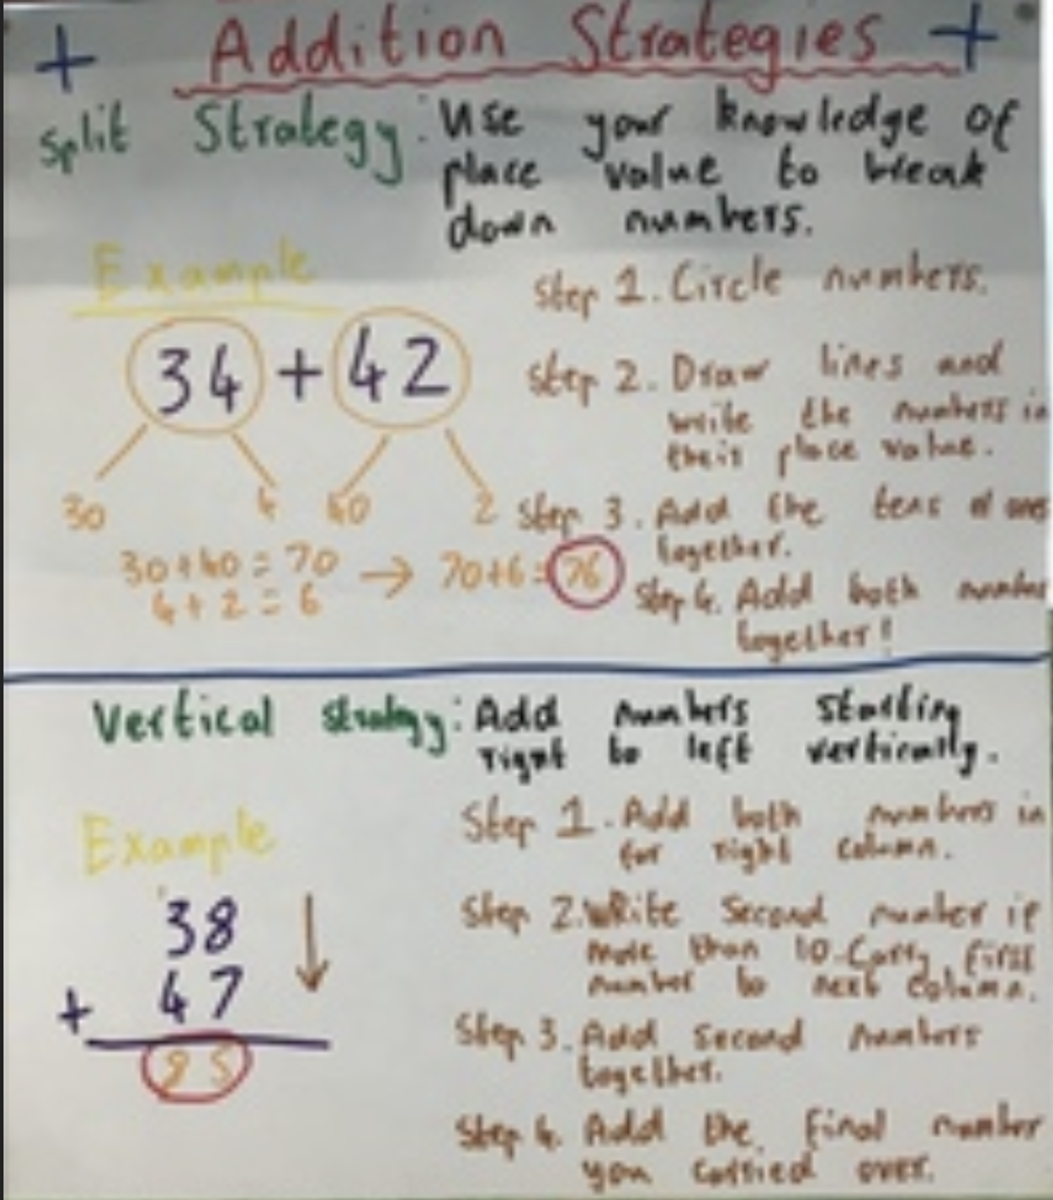 + Addition Strategies +
Split Strategy: Use your knowledge of
place value to break
down numbers.
Example
Step 1. Circle numbers.
34 + 42
Step 2. Draw lines and
write the numbers in
their place value.
30 4 40 2
Step 3. Add the tens & ones
together.
30+40=70 → 70+6=76
4+2=6
Step 4. Add both number
together!
Vertical strategy: Add numbers starting
right to left vertically.
Example
Step 1. Add both numbers in
far right column.
38
+ 47
85
Step 2. Write second number if
more than 10. Carry first
number to next column.
Step 3. Add second numbers
together.
Step 4. Add the final number
you carried over.